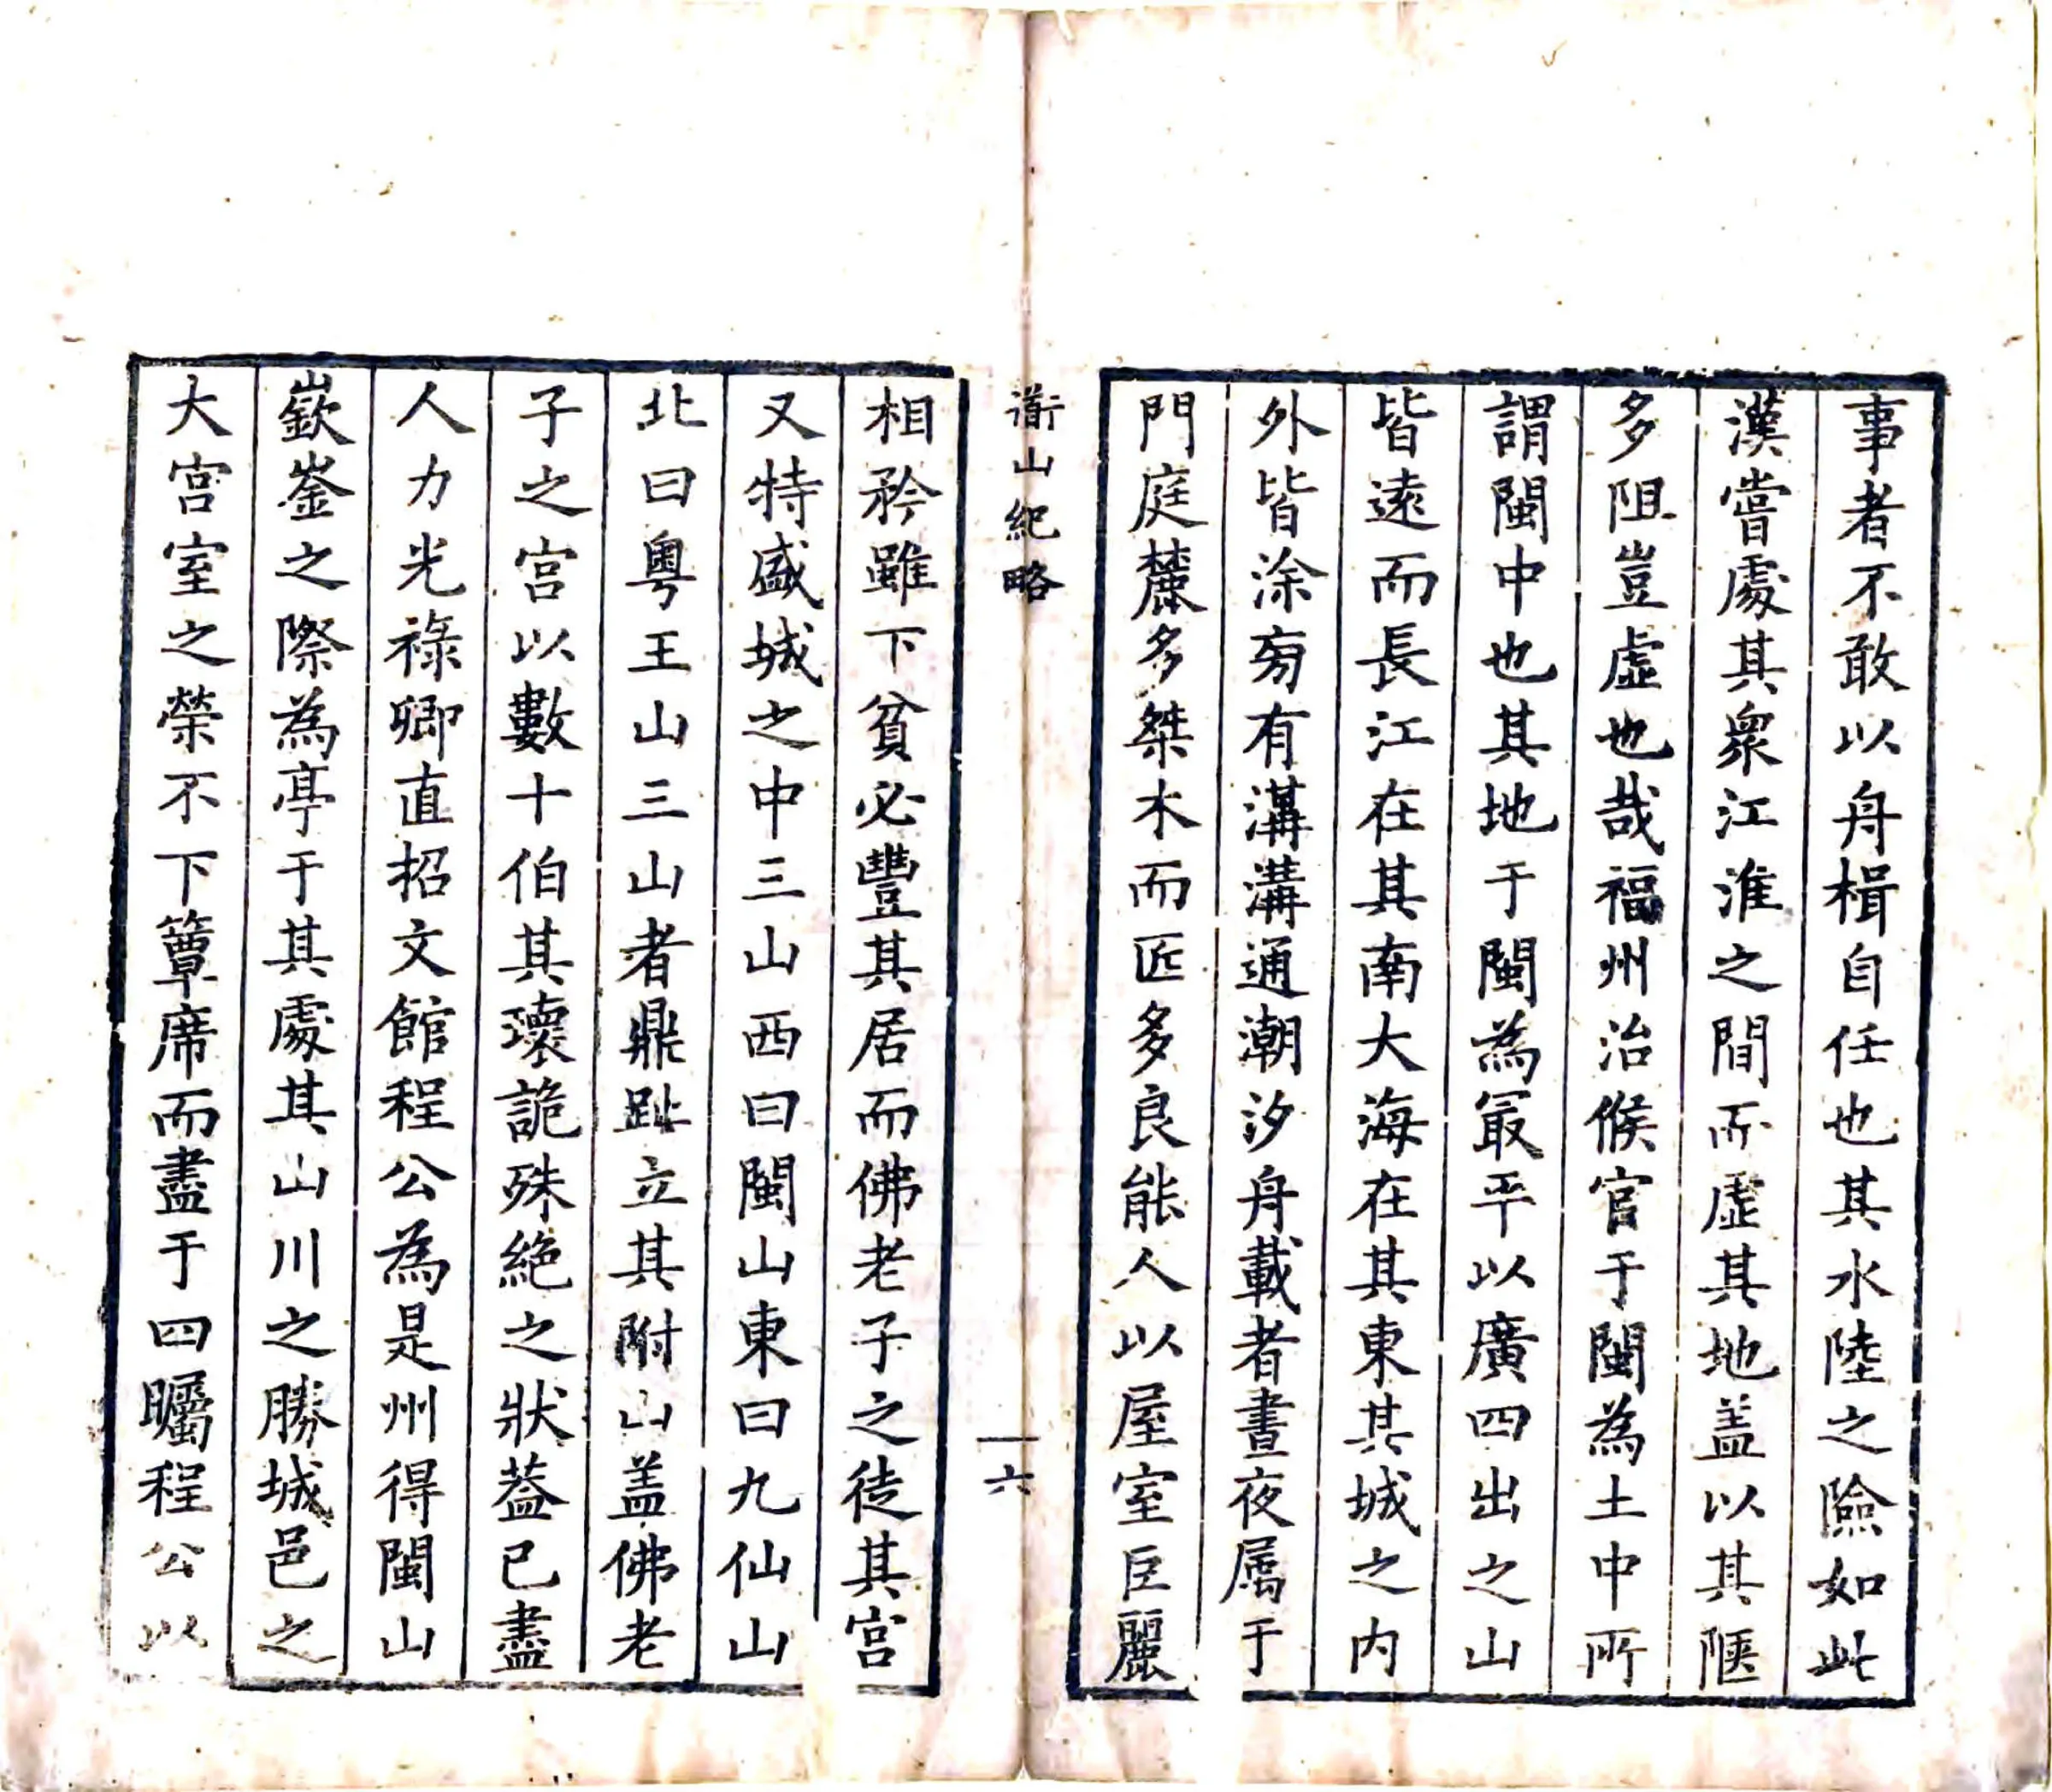 事者不敢以舟楫自任也其水陸之險如此
漢嘗處其衆江淮之間而虛其地盖以其陿
多阻豈虛也哉福州治候官于閩為土中所
謂閩中也其地于閩為冣平以廣四出之山
皆遠而長江在其南大海在其東其城之内
外皆涂旁有溝溝通潮汐舟載者晝夜属于
門庭麓多桀木而匠多良能人以屋室巨麗
道山紀略
一六
相矜雖下貧必豐其居而佛老子之徒其宫
又特盛城之中三山西曰閩山東曰九仙山
北曰粵王山三山者鼎趾立其附山盖佛老
子之宫以數十伯其瓌詭殊絶之狀葢已盡
人力光祿卿直招文館程公為是州得閩山
嶔崟之際為亭于其處其山川之勝城邑之
大宫室之榮不下簟席而盡于四矚程公以